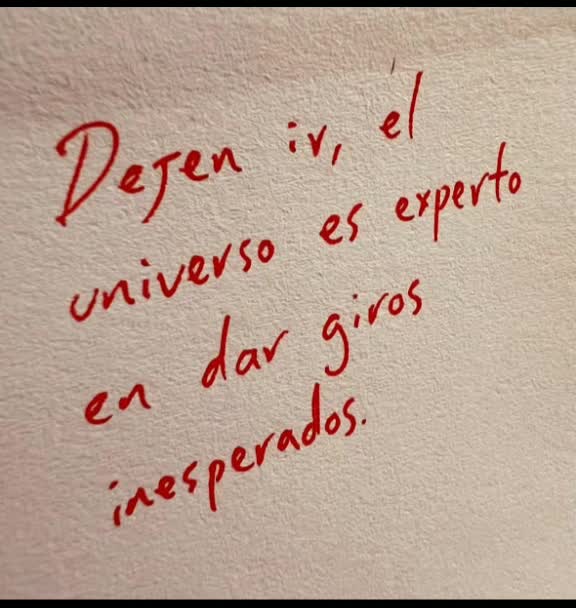 Dejen ir, el
universo es experto
en dar giros
inesperados.